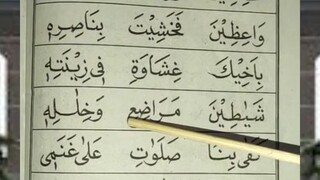 وَاعِظِيْنَ فَخَشِيْتَ بِنَاصِرِهٖ
بِاَخِيْكَ غِشَاوَةً فِیْ زِيْنَتِهٖ
شَيٰطِيْنَ مَرَاضِعَ وَخِلٰلِهٖ
كَفٰی بِنَا صَلَوٰتِ عَلٰی غَنَمِیْ